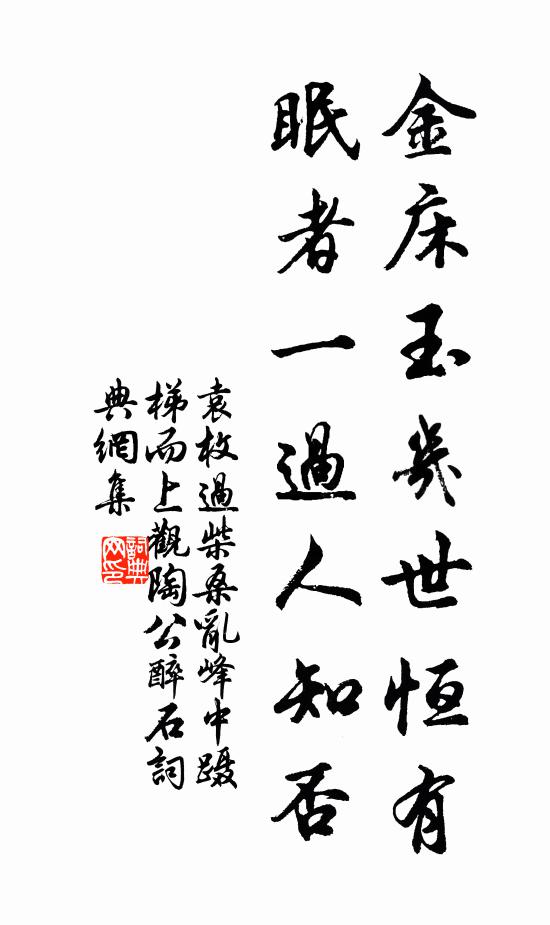 金床玉幾世恒有
眠者一過人知否
袁枚過柴桑亂峰中躡
梯而上觀陶公醉石詞
典網集
詞典
网印